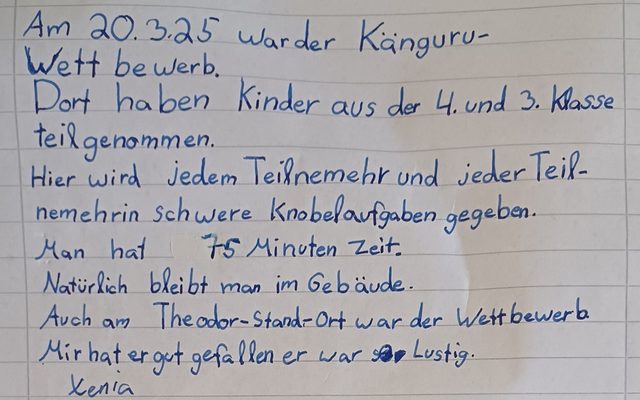 Am 20.3.25 war der Känguru-
Wettbewerb.
Dort haben Kinder aus der 4. und 3. Klasse
teilgenommen.
Hier wird jedem Teilnemehr und jeder Teil-
nemehrin schwere Knobelaufgaben gegeben.
Man hat 75 Minuten Zeit.
Natürlich bleibt man im Gebäude.
Auch am Theodor-Stand-Ort war der Wettbewerb
Mir hat er gut gefallen er war Lustig.
Xenia